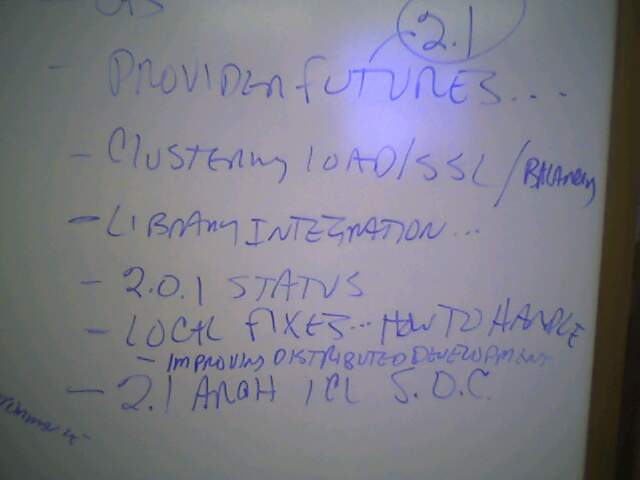 2.1
- PROVIDER FUTURES...
- CLUSTERING LOAD/SSL/BALANCING
- LIBRARY INTEGRATION...
- 2.0.1 STATUS
- LOCAL FIXES... HOW TO HANDLE
- IMPROVING DISTRIBUTED DEVELOPMENT
- 2.1 ARCH S.O.C.